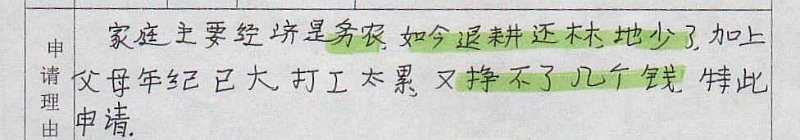 申请理由
家庭主要经济是务农,如今退耕还林,地少了,加上
父母年纪已大,打工太累,又挣不了几个钱,特此
申请.